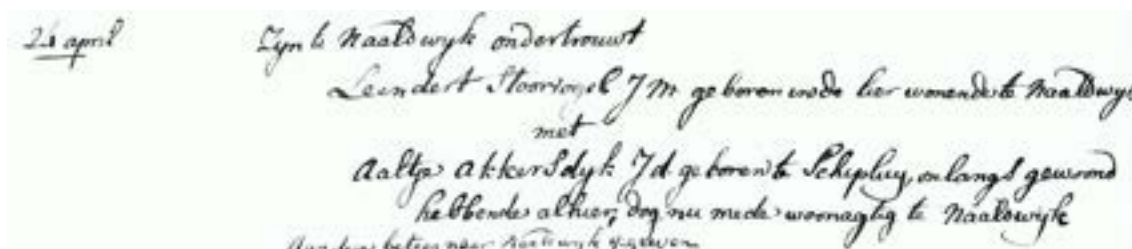 24 april
Zyn te Naaldwyk ondertrouwt
Leendert Stoorvogel J M geboren in de Lier wonende te Naaldwyk
met
Aaltje Akkersdyk J d geboren te Schipluy, onlangs gewoond
hebbende alhier, dog nu mede woonagtig te Naaldwyk